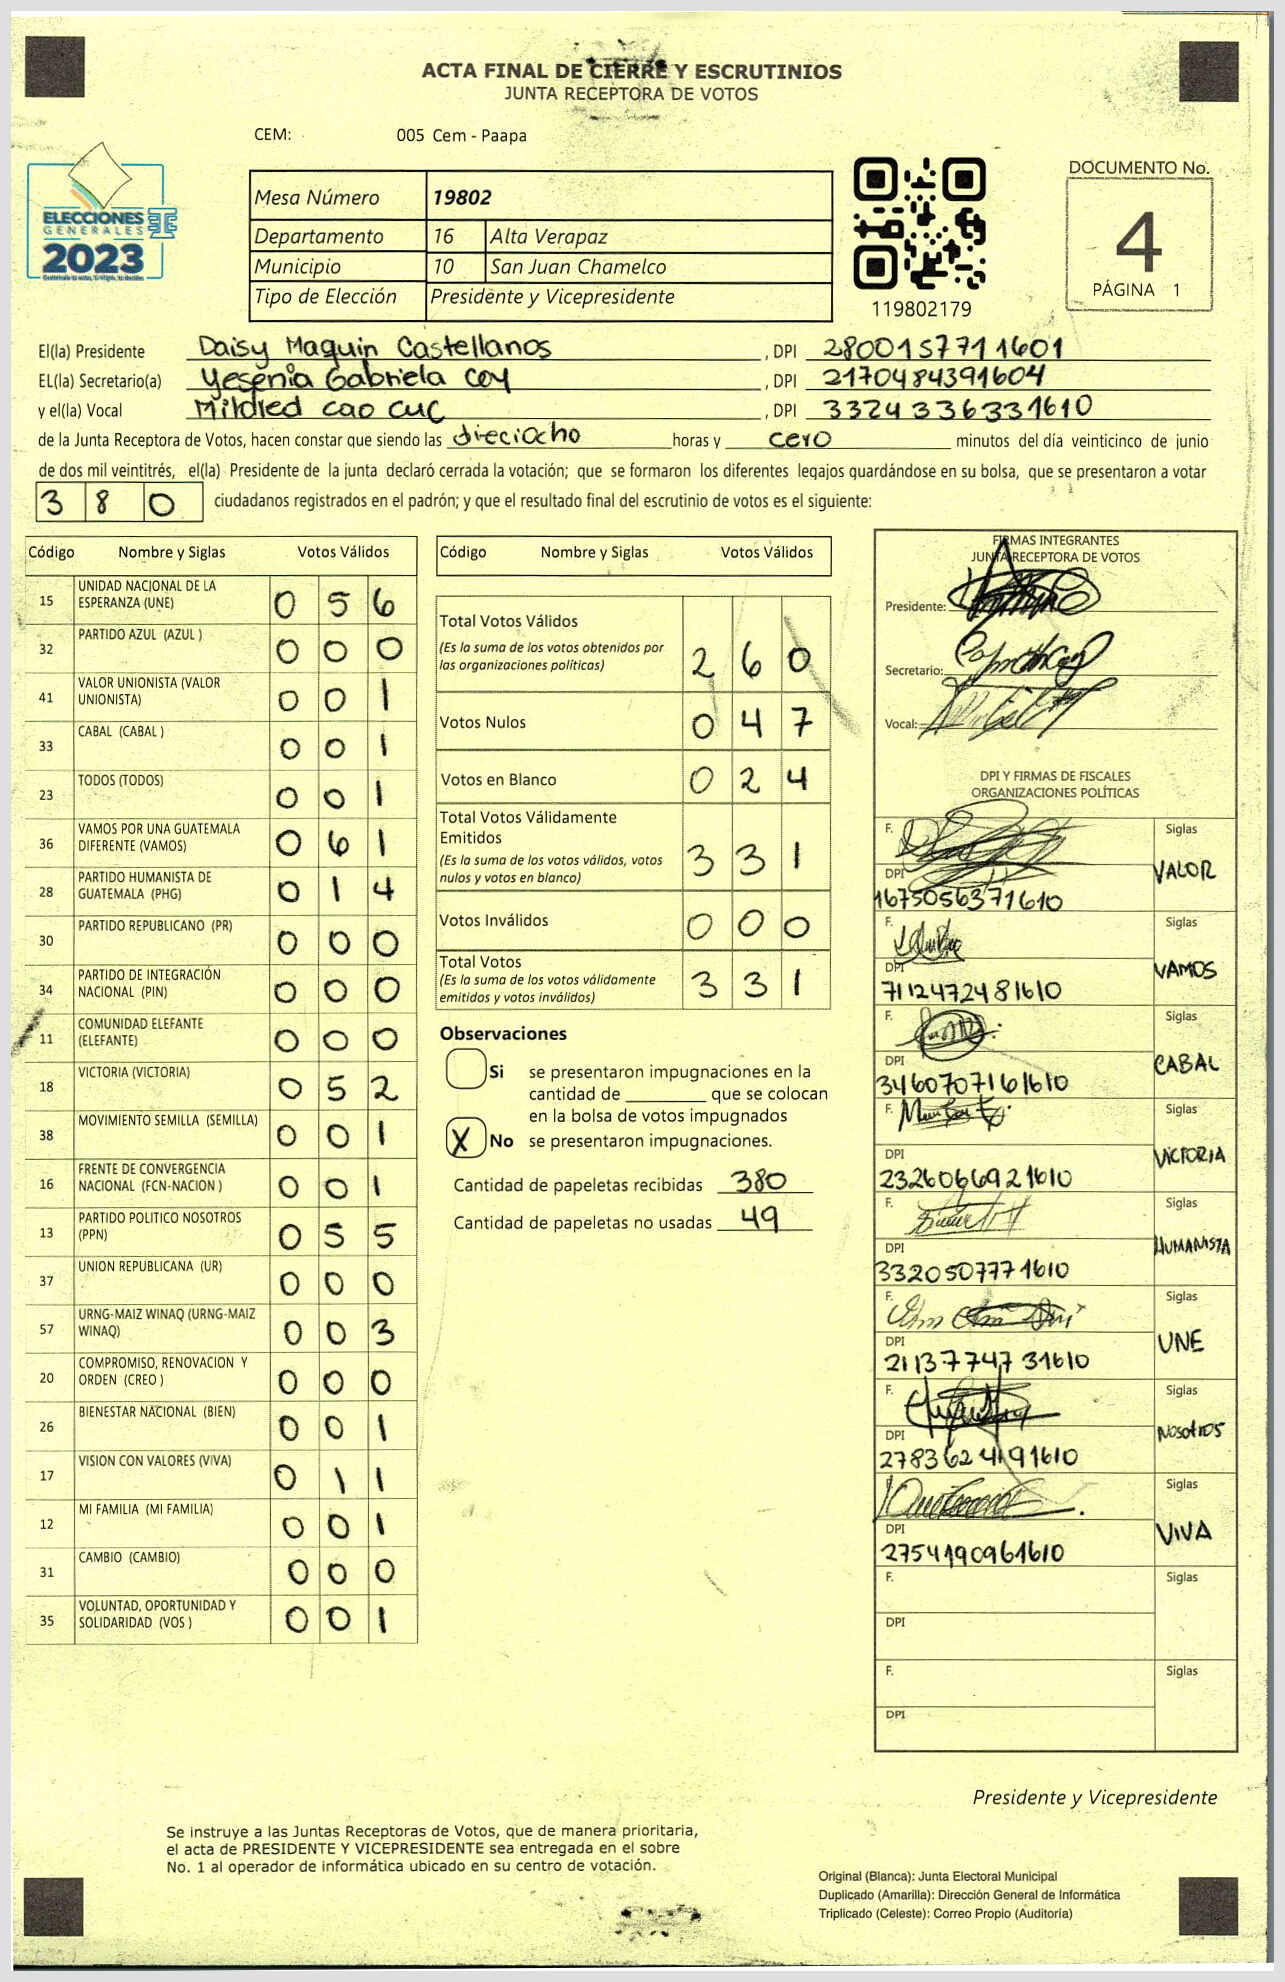 ACTA FINAL DE CIERRE Y ESCRUTINIOS
JUNTA RECEPTORA DE VOTOS
CEM: 005 Cem - Paapa
ELECCIONES
GENERALES
2023
Mesa Número 19802
Departamento 16 Alta Verapaz
Municipio 10 San Juan Chamelco
Tipo de Elección Presidente y Vicepresidente
119802179
DOCUMENTO No.
4
PÁGINA 1
El(la) Presidente Daisy Maquin Castellanos , DPI 2800157711601
EL(la) Secretario(a) Yesenia Gabriela Coy , DPI 2170484391604
y el(la) Vocal Mildred cao cuc , DPI 3324336331610
de la Junta Receptora de Votos, hacen constar que siendo las dieciocho horas y cero minutos del día veinticinco de junio
de dos mil veintitrés, el(la) Presidente de la junta declaró cerrada la votación; que se formaron los diferentes legajos guardándose en su bolsa, que se presentaron a votar
3 8 0 ciudadanos registrados en el padrón; y que el resultado final del escrutinio de votos es el siguiente:
Código Nombre y Siglas Votos Válidos
15 UNIDAD NACIONAL DE LA ESPERANZA (UNE) 0 5 6
32 PARTIDO AZUL (AZUL ) 0 0 0
41 VALOR UNIONISTA (VALOR UNIONISTA) 0 0 1
33 CABAL (CABAL ) 0 0 1
23 TODOS (TODOS) 0 0 1
36 VAMOS POR UNA GUATEMALA DIFERENTE (VAMOS) 0 6 1
28 PARTIDO HUMANISTA DE GUATEMALA (PHG) 0 1 4
30 PARTIDO REPUBLICANO (PR) 0 0 0
34 PARTIDO DE INTEGRACIÓN NACIONAL (PIN) 0 0 0
11 COMUNIDAD ELEFANTE (ELEFANTE) 0 0 0
18 VICTORIA (VICTORIA) 0 5 2
38 MOVIMIENTO SEMILLA (SEMILLA) 0 0 1
16 FRENTE DE CONVERGENCIA NACIONAL (FCN-NACION ) 0 0 1
13 PARTIDO POLITICO NOSOTROS (PPN) 0 5 5
37 UNION REPUBLICANA (UR) 0 0 0
57 URNG-MAIZ WINAQ (URNG-MAIZ WINAQ) 0 0 3
20 COMPROMISO, RENOVACION Y ORDEN (CREO ) 0 0 0
26 BIENESTAR NACIONAL (BIEN) 0 0 1
17 VISION CON VALORES (VIVA) 0 1 1
12 MI FAMILIA (MI FAMILIA) 0 0 1
31 CAMBIO (CAMBIO) 0 0 0
35 VOLUNTAD, OPORTUNIDAD Y SOLIDARIDAD (VOS ) 0 0 1
Código Nombre y Siglas Votos Válidos
Total Votos Válidos
(Es la suma de los votos obtenidos por
las organizaciones políticas) 2 6 0
Votos Nulos 0 4 7
Votos en Blanco 0 2 4
Total Votos Válidamente
Emitidos
(Es la suma de los votos válidos, votos
nulos y votos en blanco) 3 3 1
Votos Inválidos 0 0 0
Total Votos
(Es la suma de los votos válidamente
emitidos y votos inválidos) 3 3 1
Observaciones
Si se presentaron impugnaciones en la
cantidad de ________ que se colocan
en la bolsa de votos impugnados
X No se presentaron impugnaciones.
Cantidad de papeletas recibidas 380
Cantidad de papeletas no usadas 49
FIRMAS INTEGRANTES
JUNTA RECEPTORA DE VOTOS
Presidente:
Secretario:
Vocal:
DPI Y FIRMAS DE FISCALES
ORGANIZACIONES POLÍTICAS
F. Siglas
DPI VALOR
1675056371610
F. Siglas
DPI VAMOS
7112472481610
F. Siglas
DPI CABAL
3460707161610
F. Siglas
DPI VICTORIA
2326066921610
F. Siglas
DPI HUMANISTA
3320507771610
F. Siglas
DPI UNE
2113774731610
F. Siglas
DPI Nosotros
2783624191610
F. Siglas
DPI VIVA
2754190961610
F. Siglas
DPI
F. Siglas
DPI
Presidente y Vicepresidente
Se instruye a las Juntas Receptoras de Votos, que de manera prioritaria,
el acta de PRESIDENTE Y VICEPRESIDENTE sea entregada en el sobre
No. 1 al operador de informática ubicado en su centro de votación.
Original (Blanca): Junta Electoral Municipal
Duplicado (Amarilla): Dirección General de Informática
Triplicado (Celeste): Correo Propio (Auditoría)